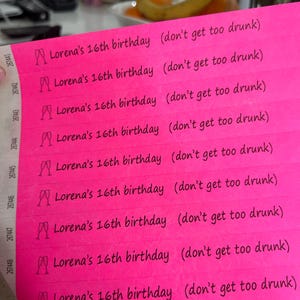 Lorena's 16th birthday (don't get too drunk)
Lorena's 16th birthday (don't get too drunk)
Lorena's 16th birthday (don't get too drunk)
Lorena's 16th birthday (don't get too drunk)
Lorena's 16th birthday (don't get too drunk)
Lorena's 16th birthday (don't get too drunk)
Lorena's 16th birthday (don't get too drunk)
Lorena's 16th birthday (don't get too drunk)
Lorena's 16th birthday (don't get too drunk)